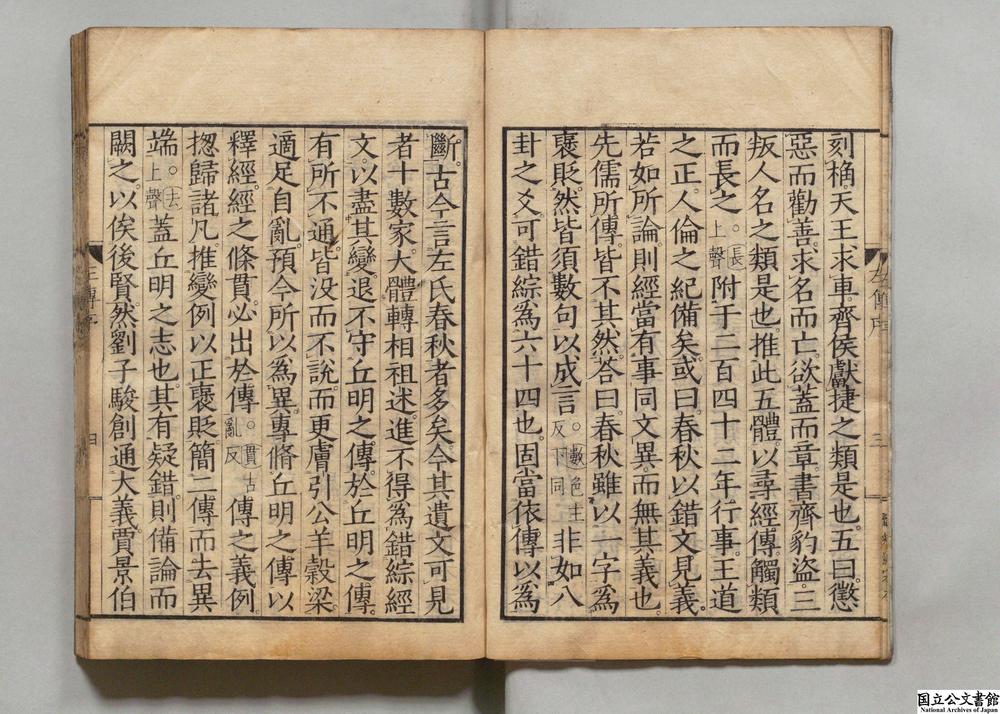 刻桷。天王求車。齊侯獻捷之類是也。五曰。懲
惡而勸善。求名而亡。欲蓋而章。書齊豹盜。三
叛人名之類是也。推此五體。以尋經傳。觸類
而長之。長上聲附于二百四十二年行事。王道
之正。人倫之紀備矣。或曰。春秋以錯文見義。
若如所論。則經當有事同文異。而無其義也。
先儒所傳。皆不其然。荅曰。春秋雖以一字為
褒貶。然皆須數句以成言。數色主反下同非如八
卦之爻。可錯綜為六十四也。固當依傳以為
斷。古今言左氏春秋者多矣。今其遺文可見
者十數家。大體轉相祖述。進不得為錯綜經
文。以盡其變。退不守丘明之傳。於丘明之傳。
有所不通。皆没而不說。而更膚引公羊穀梁
適足自亂。預今所以為異。專脩丘明之傳以
釋經。經之條貫。必出於傳貫古亂反傳之義例
揔歸諸凡。推變例以正褒貶。簡二傳而去異
端。去上聲蓋丘明之志也。其有疑錯。則備論而
闕之。以俟後賢。然劉子駿創通大義。賈景伯
左傳序
三
左傳序
四
国立公文書館
National Archives of Japan